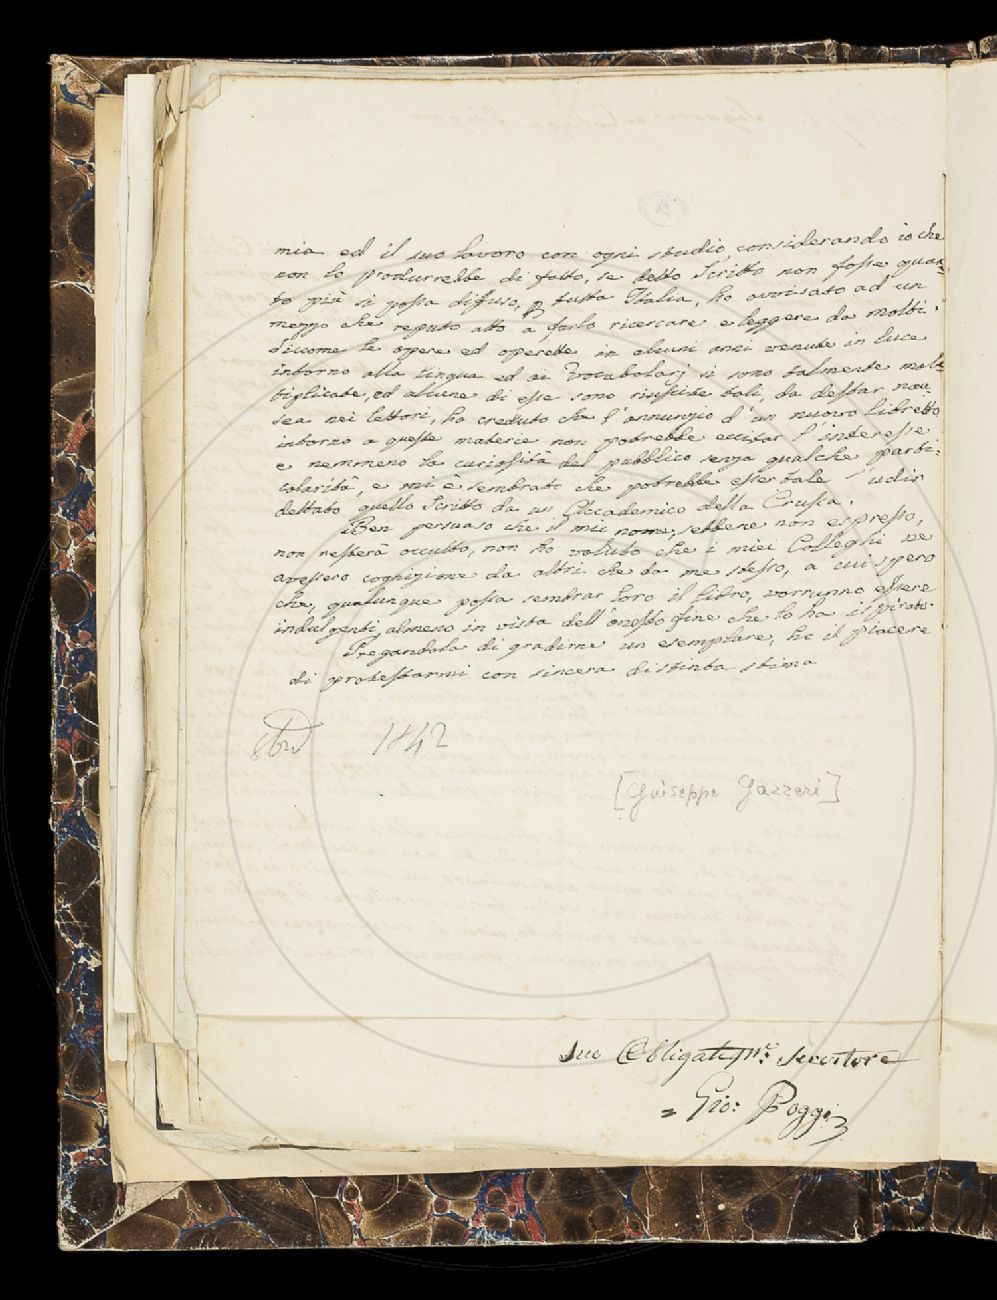 mia ed il suo lavoro con ogni studio, considerando io che
non lo produrrebbe di fatto, se detto Scritto non fosse quan-
to più si possa diffuso, p tutta Italia, ho avvisato ad un
mezzo che reputo atto a farlo ricercare e leggere da molti.
Siccome le opere ed operette in alcuni anni venute in luce
intorno alla Lingua ed ai Vocabolarj si sono talmente mol-
tiplicate, ed alcune di esse sono riuscite tali, da destar nau-
sea nei lettori, ho creduto che l'annunzio d'un nuovo libretto
intorno a queste materie non potrebbe eccitar l'interesse
e nemmeno la curiosità del pubblico senza qualche parti-
colarità, e mi è sembrato che potrebbe esser tale l'udir
dettato quello Scritto da un Accademico della Crusca.
Ben persuaso che il mio nome, sebbene non espresso,
non resterà occulto, non ho voluto che i miei Colleghi ne
avessero cognizione da altri che da me stesso, a cui spero
che, qualunque possa sembrar loro il libro, vorranno essere
indulgenti, almeno in vista dell'onesto fine che lo ha ispirato.
Pregandola di gradirne un esemplare, ho il piacere
di protestarmi con sincera distinta stima
1842
[Guiseppe Gazzeri]
Suo Obbligatiss.º Servitore
= Gio: Poggi